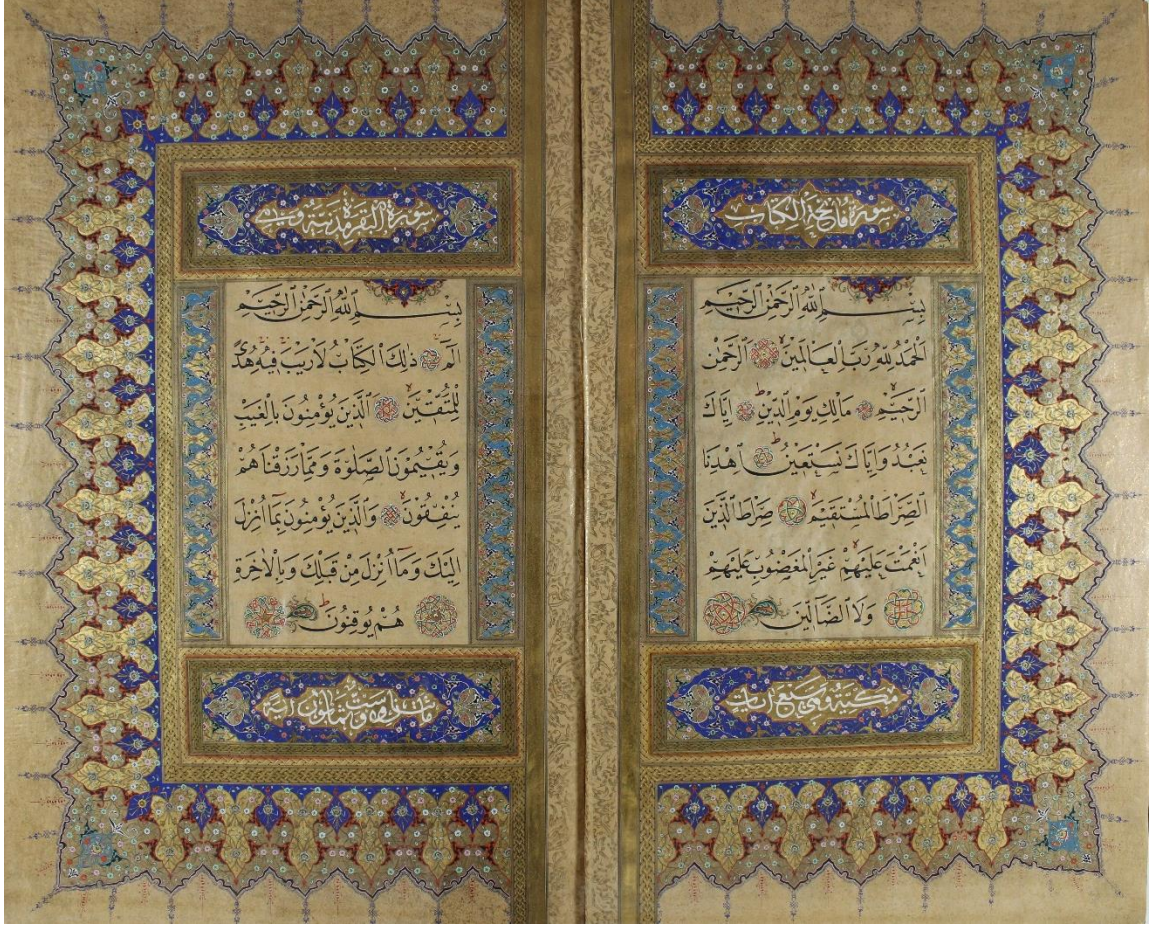 سورة فاتحة الكتاب
بِسْمِ ٱللّٰهِ ٱلرَّحْمٰنِ ٱلرَّحِيمِ
اَلْحَمْدُ لِلّٰهِ رَبِّ الْعَالَمِينَ اَلرَّحْمٰنِ
الرَّحِيمِ مَالِكِ يَوْمِ الدِّينِ اِيَّاكَ
نَعْبُدُ وَاِيَّاكَ نَسْتَعِينُ اِهْدِنَا
الصِّرَاطَ الْمُسْتَقِيمَ صِرَاطَ الَّذِينَ
اَنْعَمْتَ عَلَيْهِمْ غَيْرِ الْمَغْضُوبِ عَلَيْهِمْ
وَلَا الضَّآلِّينَ
مكية وهي سبع ايات
سورة البقرة مدنية وهي
بِسْمِ ٱللّٰهِ ٱلرَّحْمٰنِ ٱلرَّحِيمِ
الٓمٓ ذٰلِكَ الْكِتَابُ لَا رَيْبَ فِيهِ هُدًى
لِلْمُتَّقِينَ اَلَّذِينَ يُؤْمِنُونَ بِالْغَيْبِ
وَيُقِيمُونَ الصَّلٰوةَ وَمِمَّا رَزَقْنَاهُمْ
يُنْفِقُونَ وَالَّذِينَ يُؤْمِنُونَ بِمَٓا اُنْزِلَ
اِلَيْكَ وَمَٓا اُنْزِلَ مِنْ قَبْلِكَ وَبِالْاٰخِرَةِ
هُمْ يُوقِنُونَ
وست وثمانون اية